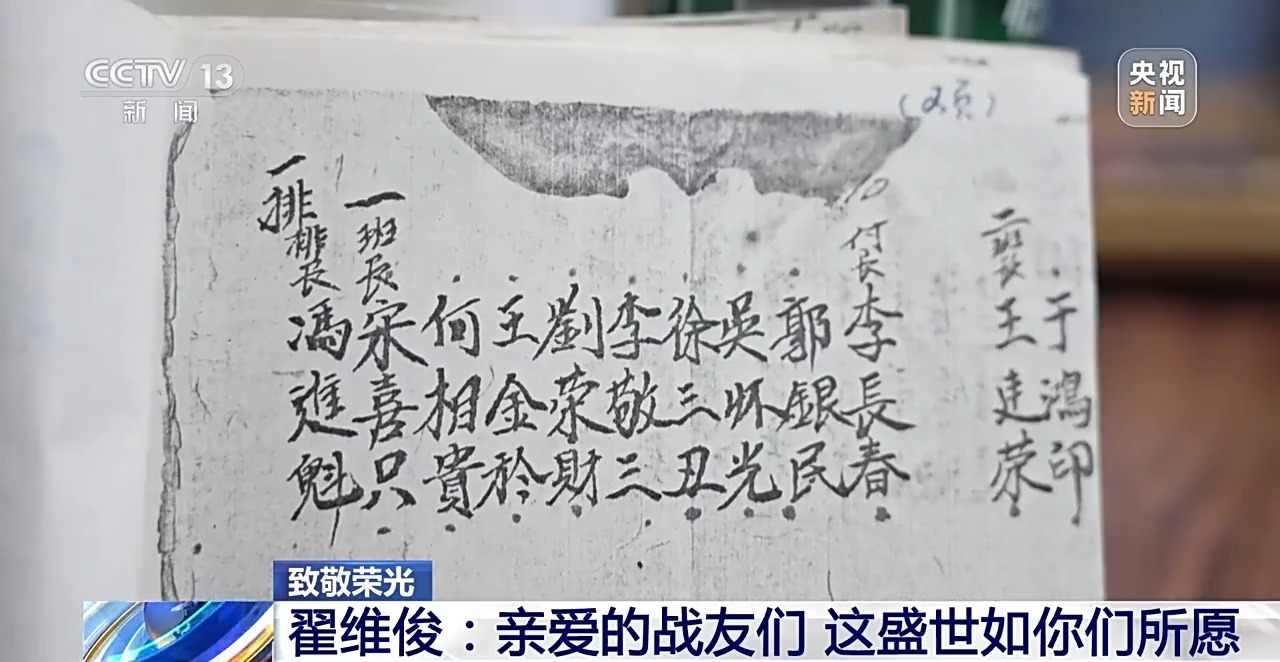 CCTV 13
新闻
央视
新闻
(2页)
一排
排长
馮進魁
一班长
宋喜只
何相貴
王金矜
劉荣財
李敬三
徐三丑
吳怀光
郭銀民
付长
李長春
二班长
王建荣
于鴻印
致敬荣光
翟维俊：亲爱的战友们 这盛世如你们所愿